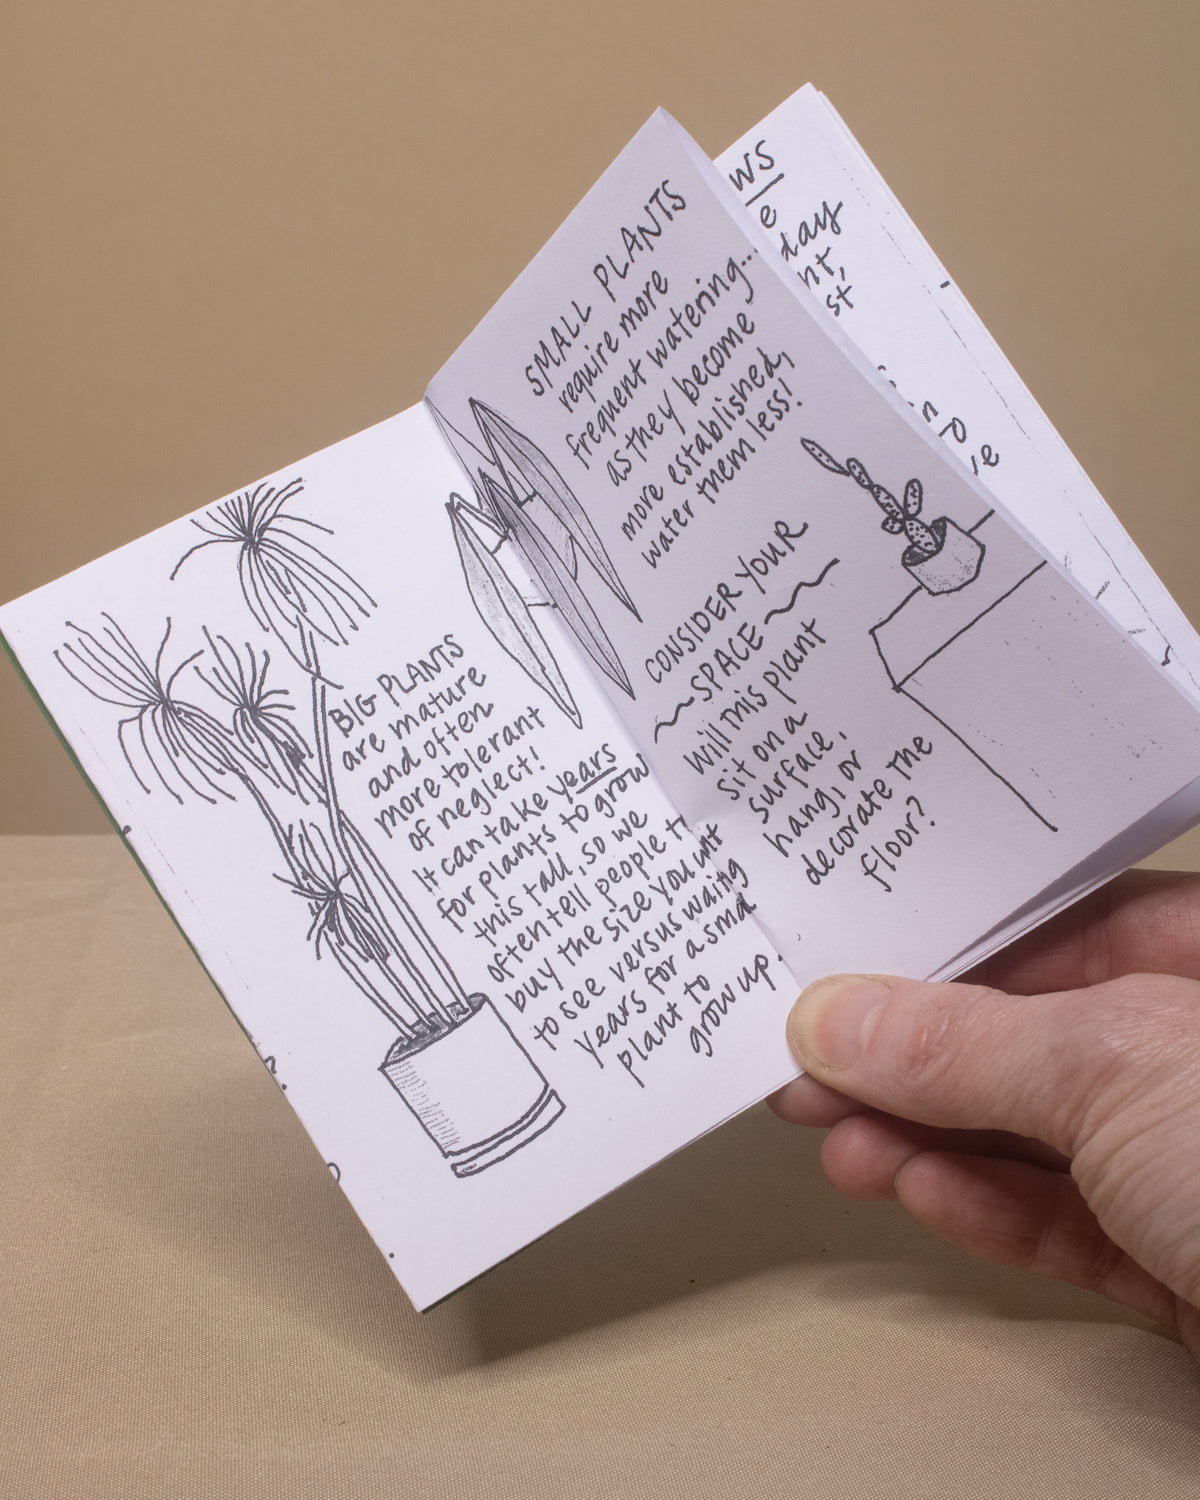 BIG PLANTS
are mature
and often
more tolerant
of neglect!
It can take years
for plants to grow
this tall, so we
often tell people
buy the size you
to see versus
years for a
plant to
grow up.
SMALL PLANTS
require more
frequent watering...
as they become
more established,
water them less!
CONSIDER YOUR
~SPACE~
Will this plant
sit on a
surface,
hang, or
decorate the
floor?
ws
e
day
st